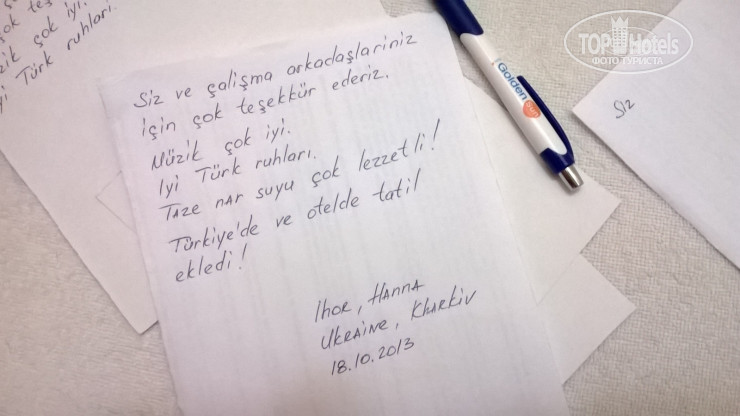 çok teş
zik çok iyi.
yi Türk ruhları.
Siz ve çalişma arkadaşlariniz
için çok teşekkür ederiz.
Müzik çok iyi.
Iyi Türk ruhları.
Taze nar suyu çok lezzetli!
Türkiye'de ve otelde tatil
ekledi!
Ihor, Hanna
Ukraine, Kharkiv
18.10.2013
Golden
Siz
TOP Hotels
ФОТО ТУРИСТА